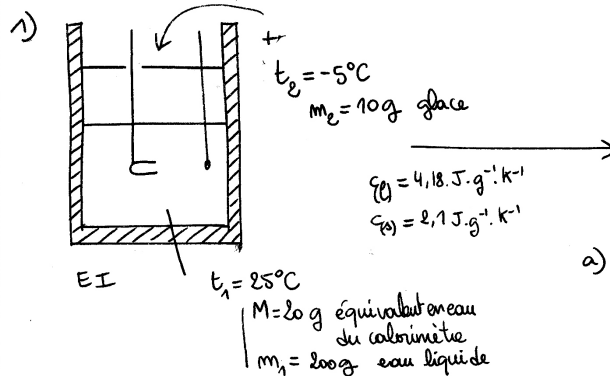 1)
+
t₂ = -5°C
m₂ = 10g glace
C(l) = 4,18. J. g⁻¹. K⁻¹
C(s) = 2,1 J. g⁻¹. K⁻¹
a)
EI
t₁ = 25°C
M = 20 g équivalent en eau
du calorimètre
m₁ = 200g eau liquide